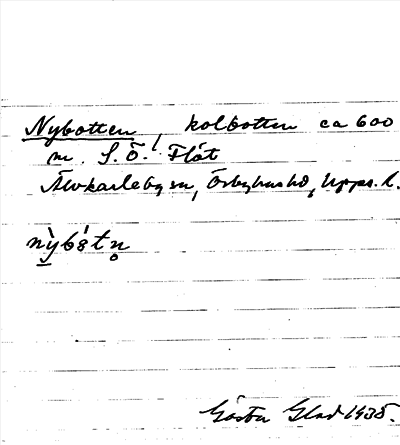 Nybotten, kolbotten ca 600
m. S.Ö. Flåt
Älvkarleby sn, Örbyhus hd, Upps. l.
Gösta Glad 1935.